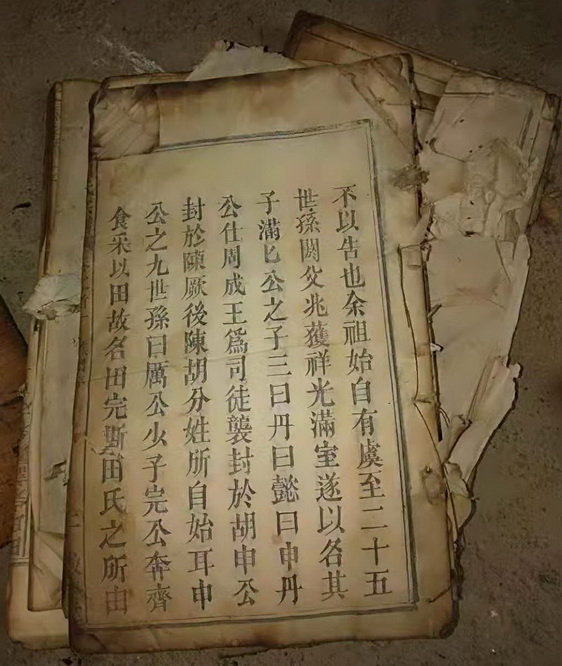 不以告也余祖始自有虞至二十五
世孫閼父兆獲祥光滿室遂以名其
子滿匕公之子三曰丹曰懿曰申丹
公仕周成王爲司徒襲封於胡申公
封於陳厥後陳胡分姓所自始耳申
公之九世孫曰厲公少子完公奔齊
食采以田故名田完斯田氏之所由